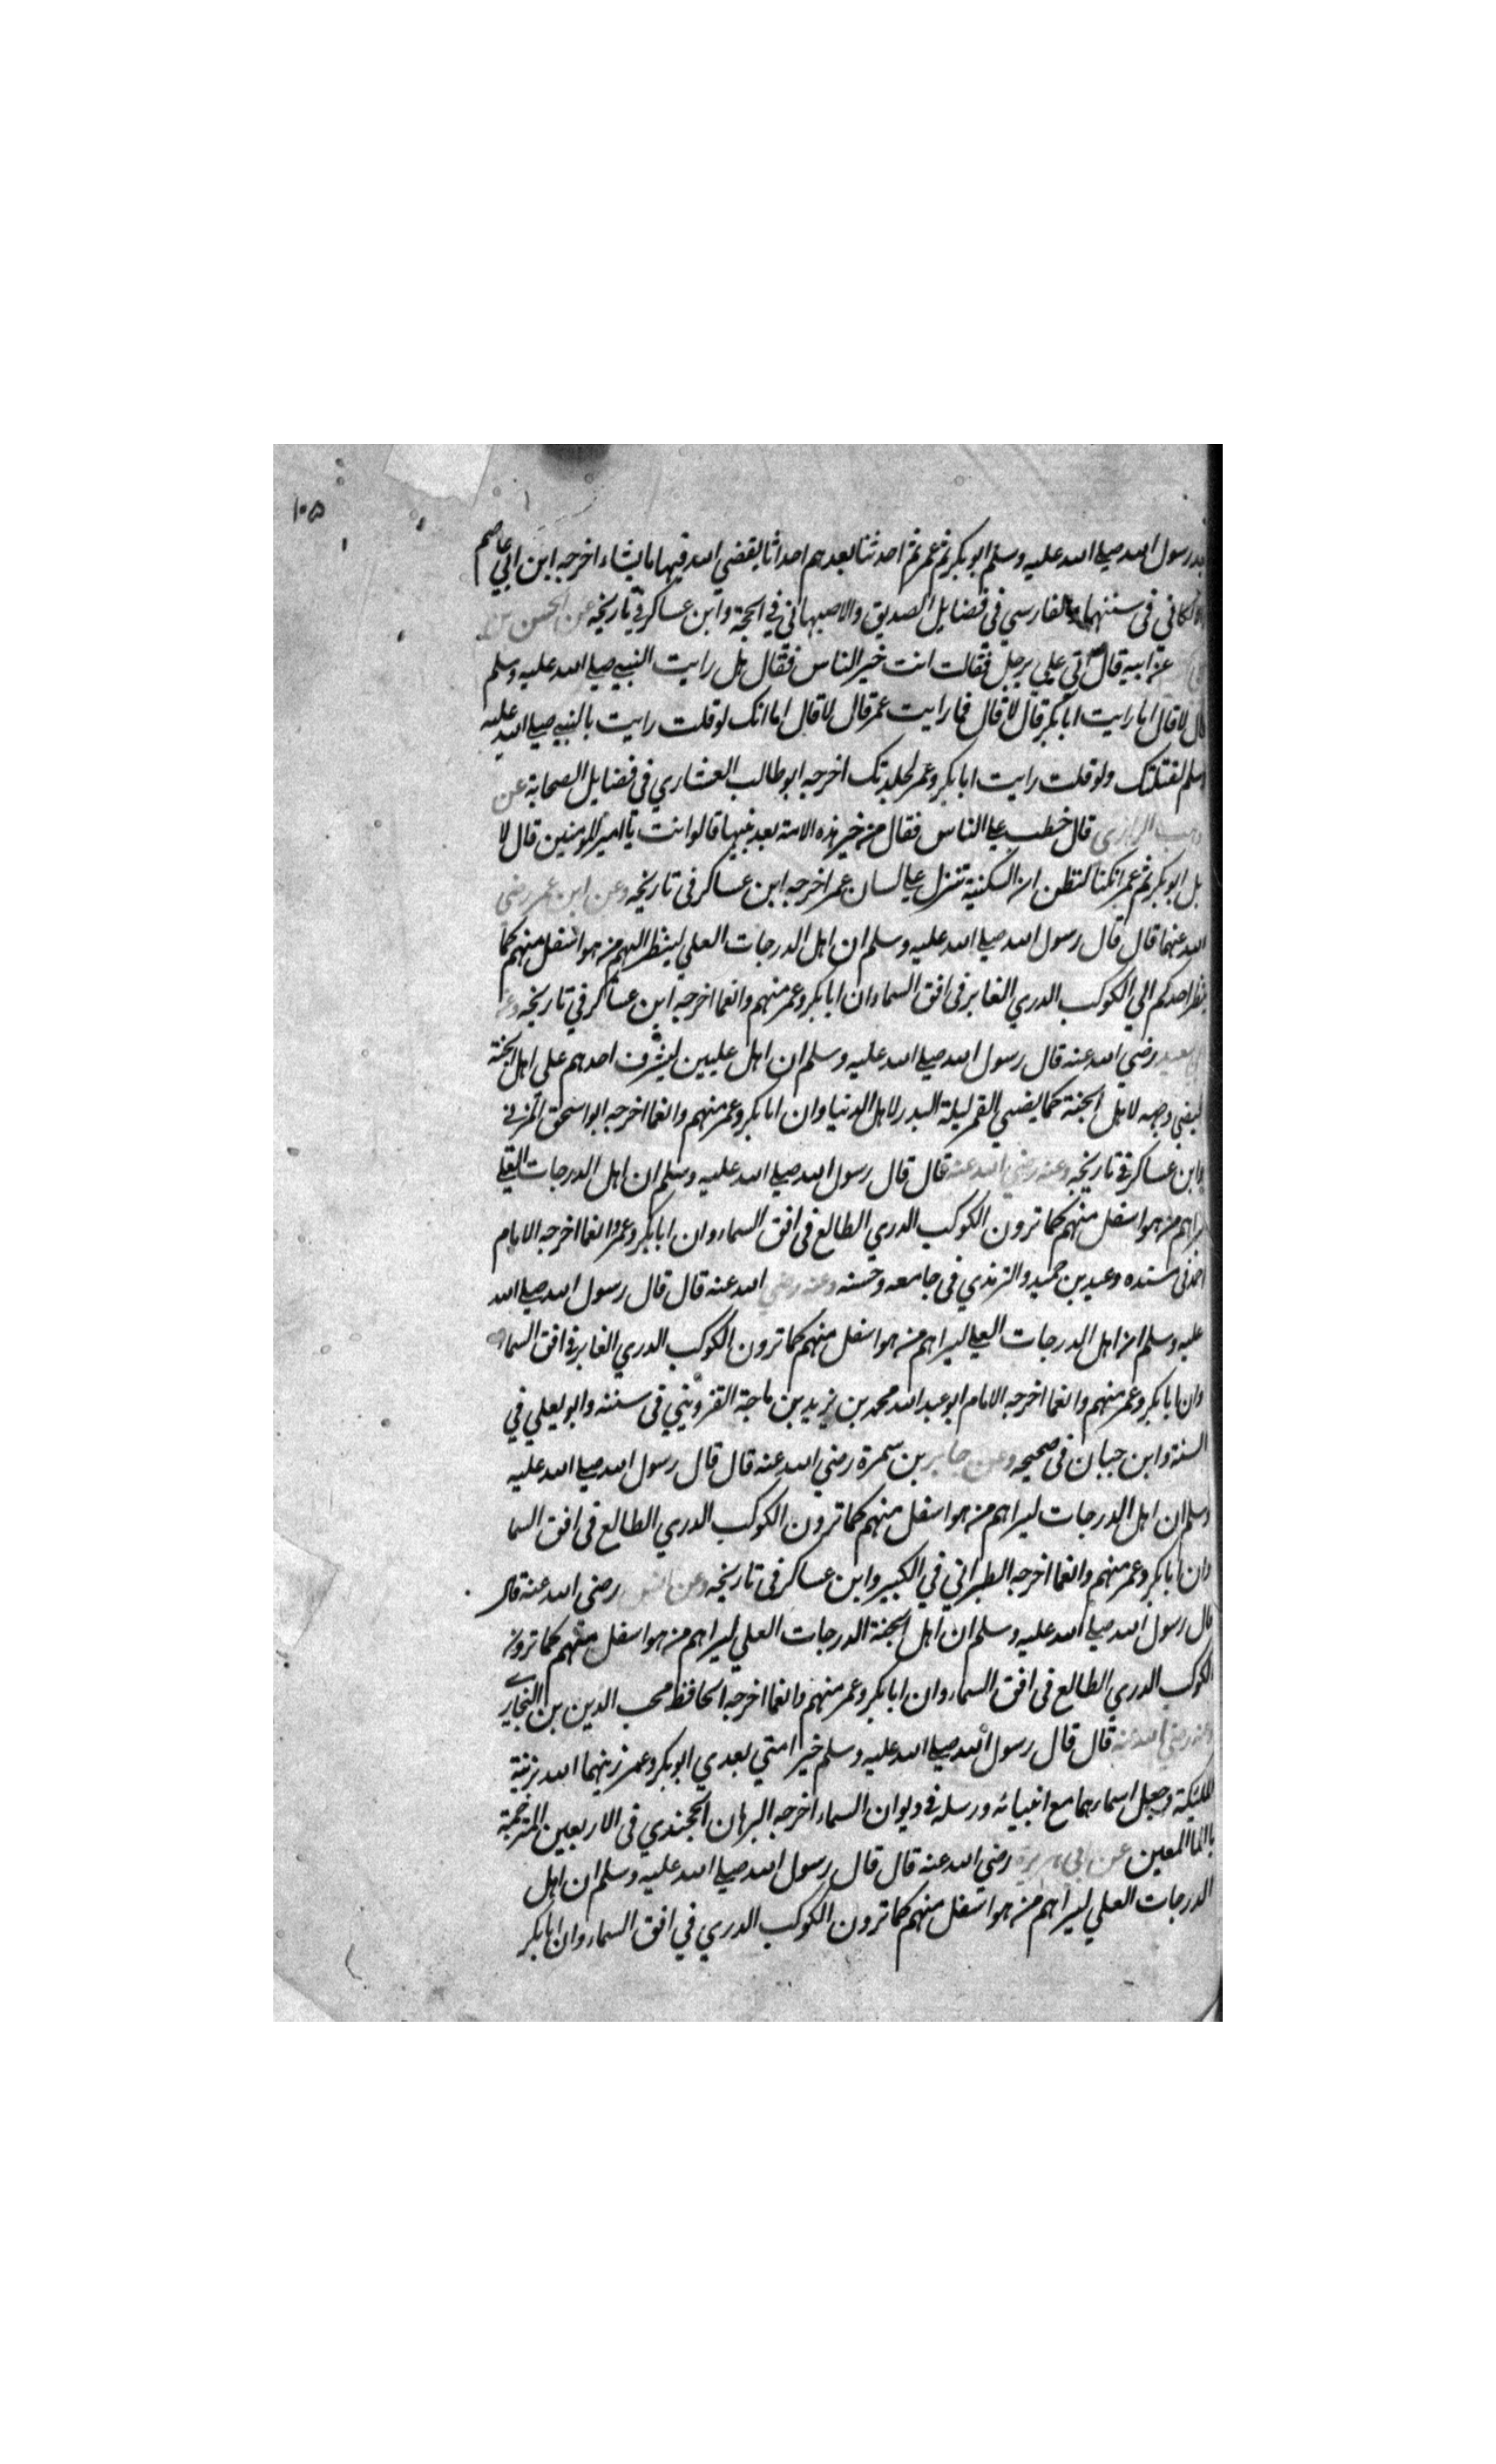 ١٠٥
بعد رسول الله صلى الله عليه وسلم ابو بكر ثم عمر ثم احدثنا بعدهم احداثا يقضي الله فيها ما يشاء اخرجه ابن ابي عاصم
اللالكاني في سننهما والفارسي في فضايل الصديق والاصبهاني في الحجة وابن عساكر في تاريخه عن الحسن بن
عن ابيه قال اتي علي برجل فقالت انت خير الناس فقال هل رايت النبي صلى الله عليه وسلم
قال لا قال اما رايت ابا بكر قال لا قال فما رايت عمر قال لا قال اما انك لو قلت رايت بالنبي صلى الله عليه
وسلم لقتلتك ولو قلت رايت ابا بكر وعمر لجلدتك اخرجه ابو طالب العشاري في فضايل الصحابة عن
وهب قال خطب علي الناس فقال من خير هذه الامة بعد نبيها قالوا انت يا امير المومنين قال لا
بل ابو بكر ثم عمر انكنا لتظن ان السكينة تنزل علي لسان عمر اخرجه ابن عساكر في تاريخه وعن ابن عمر رضي
الله عنهما قال قال رسول الله صلى الله عليه وسلم ان اهل الدرجات العلي لينظر اليهم من هو اسفل منهم كما
ينظر احدكم الي الكوكب الدري الغابر في افق السماء وان ابا بكر وعمر منهم وانعما اخرجه ابن عساكر في تاريخه وعن
ابي سعيد رضي الله عنه قال رسول الله صلى الله عليه وسلم ان اهل عليين ليشرف احدهم علي اهل الجنة
ليضي وجهه لاهل الجنة كما يضيي القمر ليلة البدر لاهل الدنيا وان ابا بكر وعمر منهم وانعما اخرجه ابو اسحق المزني
وابن عساكر في تاريخه وعنه رضي الله عنه قال قال رسول الله صلى الله عليه وسلم ان اهل الدرجات العلي
ليراهم من هو اسفل منهم كما ترون الكوكب الدري الطالع في افق السماء وان ابا بكر وعمر وانعما اخرجه الامام
احمد في مسنده وعبد بن حميد والترمذي في جامعه وحسنه وعنه رضي الله عنه قال قال رسول الله صلى الله
عليه وسلم ان اهل الدرجات العلي ليراهم من هو اسفل منهم كما ترون الكوكب الدري الغابر في افق السماء
وان ابا بكر وعمر منهم وانعما اخرجه الامام ابو عبد الله محمد بن يزيد بن ماجة القزويني في سننه وابو يعلي في
السنة وابن حبان في صحيحه وعن جابر بن سمرة رضي الله عنه قال قال رسول الله صلى الله عليه
وسلم ان اهل الدرجات ليراهم من هو اسفل منهم كما ترون الكوكب الدري الطالع في افق السما
وان ابا بكر وعمر منهم وانعما اخرجه الطبراني في الكبير وابن عساكر في تاريخه وعن انس رضي الله عنه قال
قال رسول الله صلى الله عليه وسلم ان اهل الجنة الدرجات العلي ليراهم من هو اسفل منهم كما ترون
الكوكب الدري الطالع في افق السماء وان ابا بكر وعمر منهم وانعما اخرجه الحافظ محب الدين بن النجار
وعنه رضي الله عنه قال قال رسول الله صلى الله عليه وسلم خير امتي بعدي ابو بكر وعمر زينهما الله بزينة
الملئكة وجعل اسمارهما مع انبيائه ورسله في ديوان السماء اخرجه البرهان الخجندي في الاربعين المترجمة
بالما المعين عن ابي هريرة رضي الله عنه قال قال رسول الله صلى الله عليه وسلم ان اهل
الدرجات العلي ليراهم من هو اسفل منهم كما ترون الكوكب الدري في افق السماء وان ابا بكر